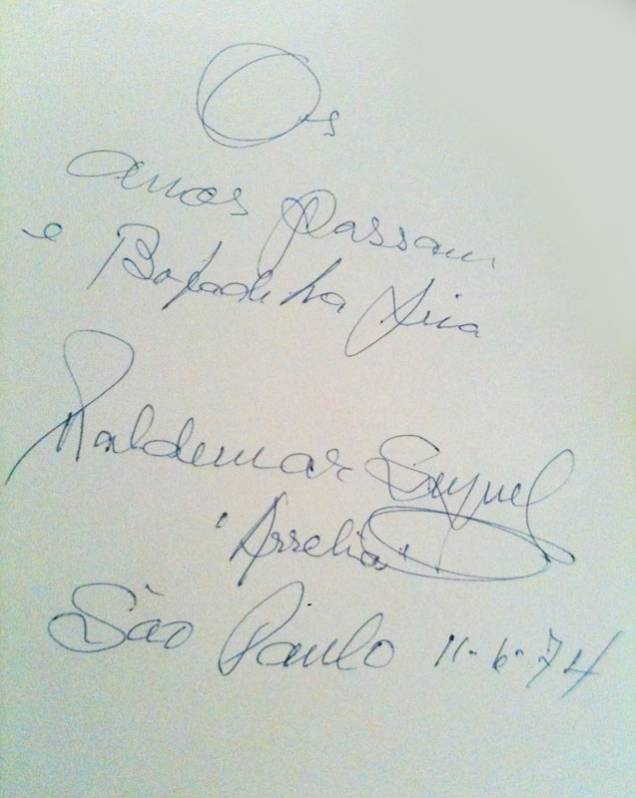 Os
anos passam
e fica
Waldemar Seyssel
"Arrelia"
São Paulo 11-6-74